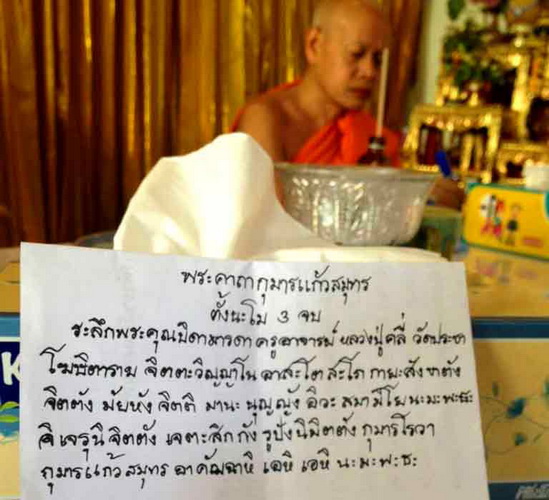 พระคาถากุมารแก้วสมุทร
ตั้งนะโม 3 จบ
ระลึกพระคุณบิดามารดาครูอาจารย์ หลวงปู่คลี่ วัดประชา
โฆษิตาราม จิตตะวิญญาโน อาสะโต สะโภ กายะสังขาตัง
จิตตัง มัยหัง จิตติ มานะ นุญญัง อิวะ สมามิโย นะมะพะธะ
จิ เจรุนิ จิตตัง เจตะสิกกัง รูปังนิมิตตัง กุมารโรวา
กุมารแก้วสมุทร อาคัจฉาหิ เอหิ เอหิ นะมะพะธะ